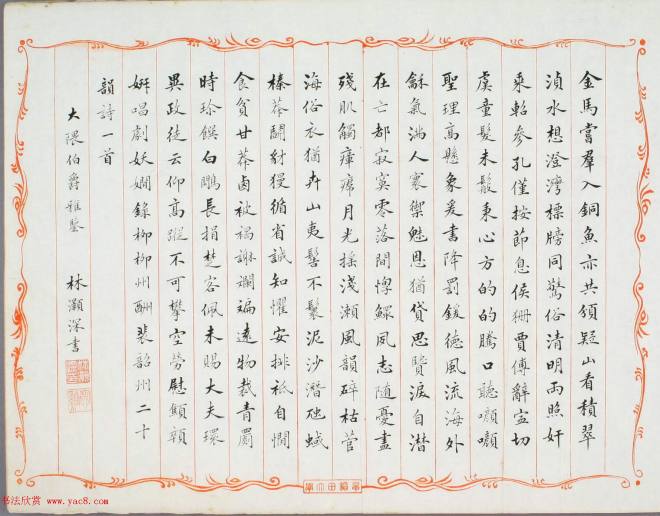 金馬嘗羣入銅魚亦共頒疑山看積翠
湞水想澄灣標牓同驚俗清明兩照奸
乘軺參孔僅按節息侯狦賈傅辭寧切
虞童髮未秉心方的的騰口聽
聖理高懸象爰書降罰鍰德風流海外
龢氣滿人寰禦魅恩猶貸思賢淚自潸
在亡都寂寞零落間惸鰥夙志隨憂盡
殘肌觸瘴月光搖淺瀨風韻碎枯菅
海俗衣猶卉山夷髻不鬟泥沙潛虺蜮
榛莽鬭豺獌循省誠知懼安排祗自憪
食貧甘莽鹵被褐謝斕斒遠物裁青罽
時珍饌白鷴長捐楚客佩未賜大夫環
異政徒云仰高蹤不可攀空勞慰顦顇
妍唱劇妖嫺錄柳柳州酬裴韶州二十
韻詩一首
大隈伯爵雅鑒
林灝深書
书法欣赏 www.yac8.com